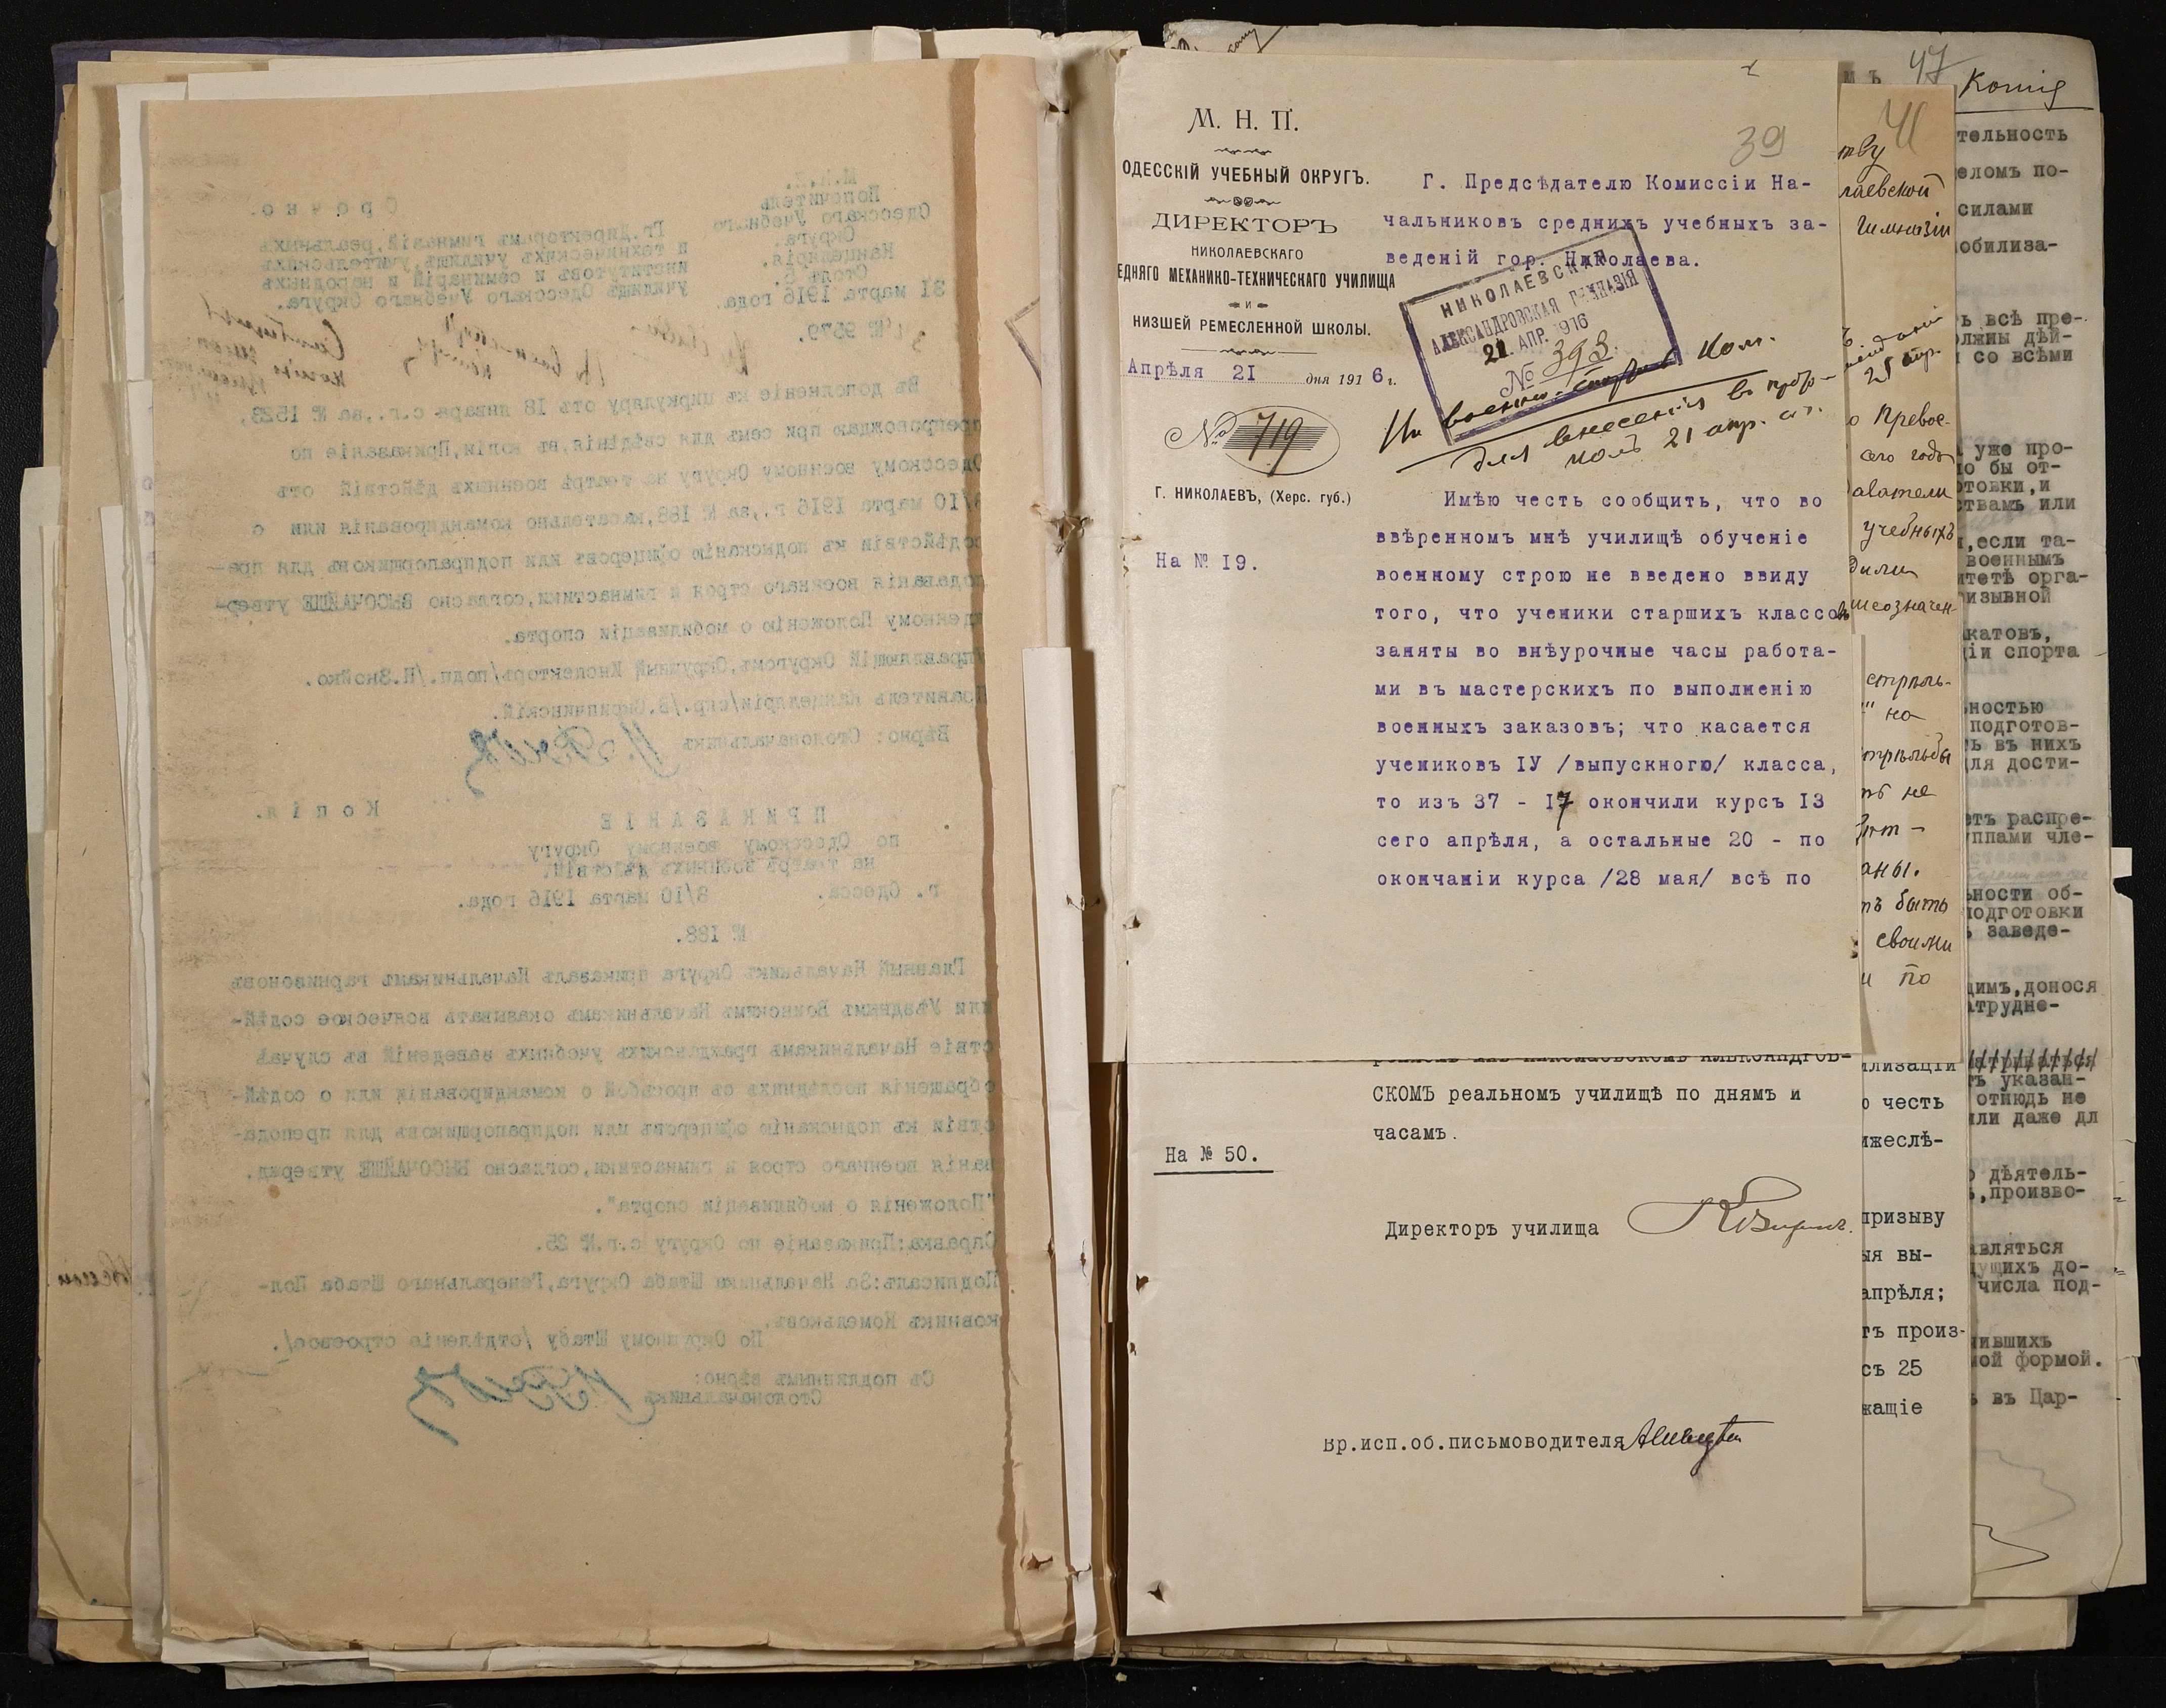 М. Н. П.
ОДЕССКІЙ УЧЕБНЫЙ ОКРУГЪ.
ДИРЕКТОРЪ
НИКОЛАЕВСКАГО
ЕДНЯГО МЕХАНИКО-ТЕХНИЧЕСКАГО УЧИЛИЩА
и
НИЗШЕЙ РЕМЕСЛЕННОЙ ШКОЛЫ.
Апрѣля 21 дня 1916 г.
№ 719
Г. НИКОЛАЕВЪ, (Херс. губ.)
На № I9.
39
Г. Предсѣдателю Комиссіи На-
чальниковъ среднихъ учебныхъ за-
веденій гор. Николаева.
НИКОЛАЕВСКАЯ
АЛЕКСАНДРОВСКАЯ ГИМНАЗІЯ
21. АПР. 1916
№ 393.
для внесенія въ
21 апр.
Имѣю честь сообщить, что во
ввѣренномъ мнѣ училищѣ обученіе
военному строю не введено ввиду
того, что ученики старшихъ классовъ
заняты во внѣурочные часы работа-
ми въ мастерскихъ по выполненію
военныхъ заказовъ; что касается
учениковъ IУ /выпускного/ класса,
то изъ 37 - I7 окончили курсъ I3
сего апрѣля, а остальные 20 - по
окончаніи курса /28 мая/ всѣ по
СКОМЪ реальномъ училищѣ по днямъ и
часамъ.
На № 50.
Директоръ училища
Вр.исп.об.письмоводителя
41
тву
лаевской
Гимназіи
25 апр.
о Превос-
сего года
даватели
учебныхъ
дили
стрѣль-
на
стрѣльбы
не
аны.
быть
своими
и по
илизаціи
о честь
ижеслѣ-
призыву
ія вы-
апрѣля;
тъ произ-
съ 25
жащіе
47
тельность
еломъ по-
силами
обилиза-
ь всѣ пре-
лжны дѣй-
и со всѣми
уже про-
о бы от-
отовки,и
ствамъ или
,если та-
военнымъ
итетѣ орга-
изывной
катовъ,
ціи спорта
ностью
подготов-
ь въ нихъ
ля дости-
етъ распре-
уппами чле-
ности об-
одготовки
заведе-
цимъ,донося
атрудне-
ть указан-
отнюдь не
или даже дл
о дѣятель-
,произво-
авляться
ущихъ до-
числа под-
ившихъ
ой формой.
въ Цар-
М.Н.П.
Попечитель
Одесскаго Учебнаго
Округа.
Канцелярія.
Столъ 6.
31 марта 1916 года.
№ 9579.
Срочно.
Гг.Директорамъ гимназій,реальныхъ
и техническихъ училищъ,учительскихъ
институтовъ и семинарій и народныхъ
училищъ Одесскаго Учебнаго Округа.
Въ дополненіе къ циркуляру отъ 18 января с.г.,за № 1523,
препровождаю при семъ для свѣдѣнія,въ копіи,Приказаніе по
Одесскому военному Округу на театрѣ военныхъ дѣйствій отъ
8/10 марта 1916 г.,за № 188,касательно командированія или о
содѣйствіи къ подысканію офицеровъ или подпрапорщиковъ для пре-
подаванія военнаго строя и гимнастики,согласно ВЫСОЧАЙШЕ утвер-
жденному Положенію о мобилизаціи спорта.
Управляющій Округомъ,Окружный Инспекторъ/подп./Н.Знойко.
Правитель Канцеляріи/скр./В.Скрипчинскій.
Вѣрно: Столоначальникъ
Копія.
ПРИКАЗАНІЕ
по Одесскому военному Округу
на театрѣ военныхъ дѣйствій.
г. Одесса. 8/10 марта 1916 года.
№ 188.
Главный Начальникъ Округа приказалъ Начальникамъ гарнизоновъ
или Уѣзднымъ Воинскимъ Начальникамъ оказывать всяческое содѣй-
ствіе Начальникамъ гражданскихъ учебныхъ заведеній въ случаѣ
обращенія послѣднихъ съ просьбой о командированіи или о содѣй-
ствіи къ подысканію офицеровъ или подпрапорщиковъ для препода-
ванія военнаго строя и гимнастики,согласно ВЫСОЧАЙШЕ утвержд.
"Положенія о мобилизаціи спорта".
Справка:Приказаніе по Округу с.г.№ 25.
Подписалъ:За Начальника Штаба Округа,Генеральнаго Штаба Пол-
ковникъ Комельковъ.
По Окружному Штабу /отдѣленіе строевое/.
Съ подлиннымъ вѣрно:
Столоначальникъ